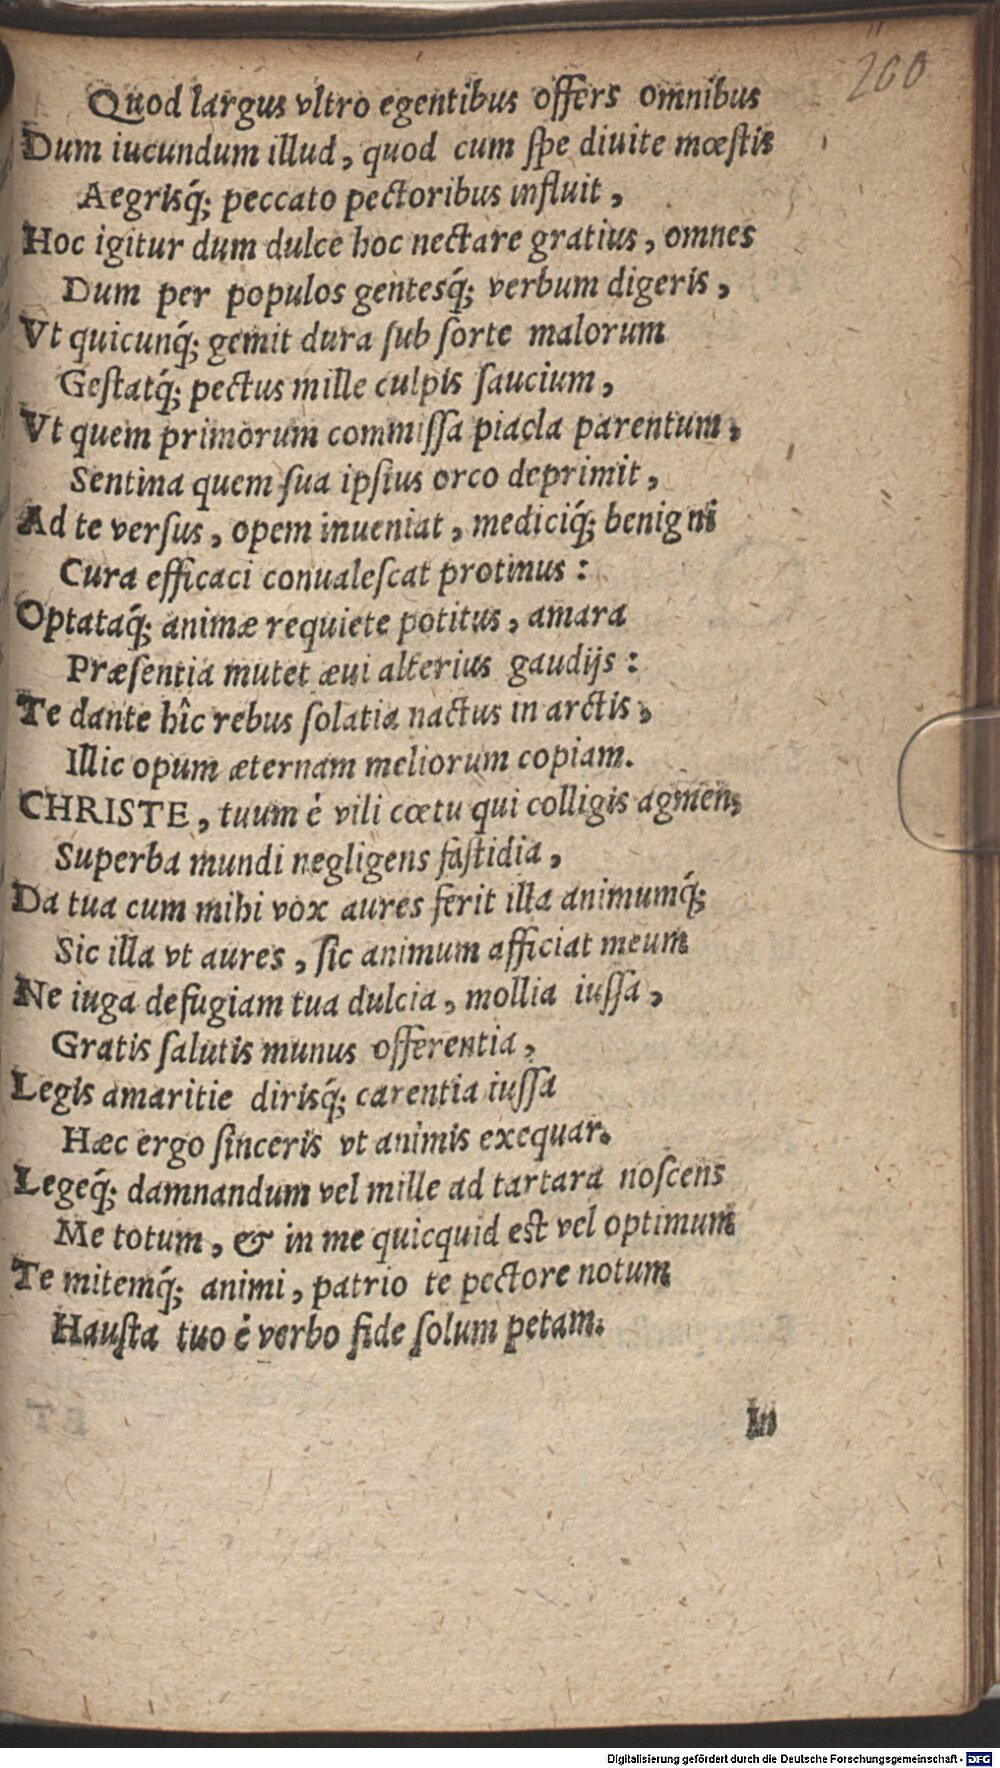 200
Quod largus vltro egentibus offers omnibus
Dum iucundum illud, quod cum ſpe diuite mœſtis
Aegrisq́; peccato pectoribus influit,
Hoc igitur dum dulce hoc nectare gratius, omnes
Dum per populos gentesq́; verbum digeris,
Vt quicunq́; gemit dura ſub ſorte malorum
Geſtatq́; pectus mille culpis ſaucium,
Vt quem primorum commiſſa piacla parentum,
Sentina quem ſua ipſius orco deprimit,
Ad te verſus, opem inueniat, mediciq́; benigni
Cura efficaci conualeſcat protinus:
Optataq́; animæ requiete potitus, amara
Præſentia mutet æui alterius gaudijs:
Te dante hîc rebus ſolatia nactus in arctis,
Illic opum æternam meliorum copiam.
CHRISTE, tuum è vili cœtu qui colligis agmen,
Superba mundi negligens faſtidia,
Da tua cum mihi vox aures ferit illa animumq́;
Sic illa vt aures, ſic animum afficiat meum
Ne iuga defugiam tua dulcia, mollia iuſſa,
Gratis ſalutis munus offerentia,
Legis amaritie dirisq́; carentia iuſſa
Hæc ergo ſinceris vt animis exequar.
Legeq́; damnandum vel mille ad tartara noſcens
Me totum, & in me quicquid eſt vel optimum
Te mitemq́; animi, patrio te pectore notum
Hauſta tuo è verbo fide ſolum petam.
In
Digitalisierung gefördert durch die Deutsche Forschungsgemeinschaft - DFG